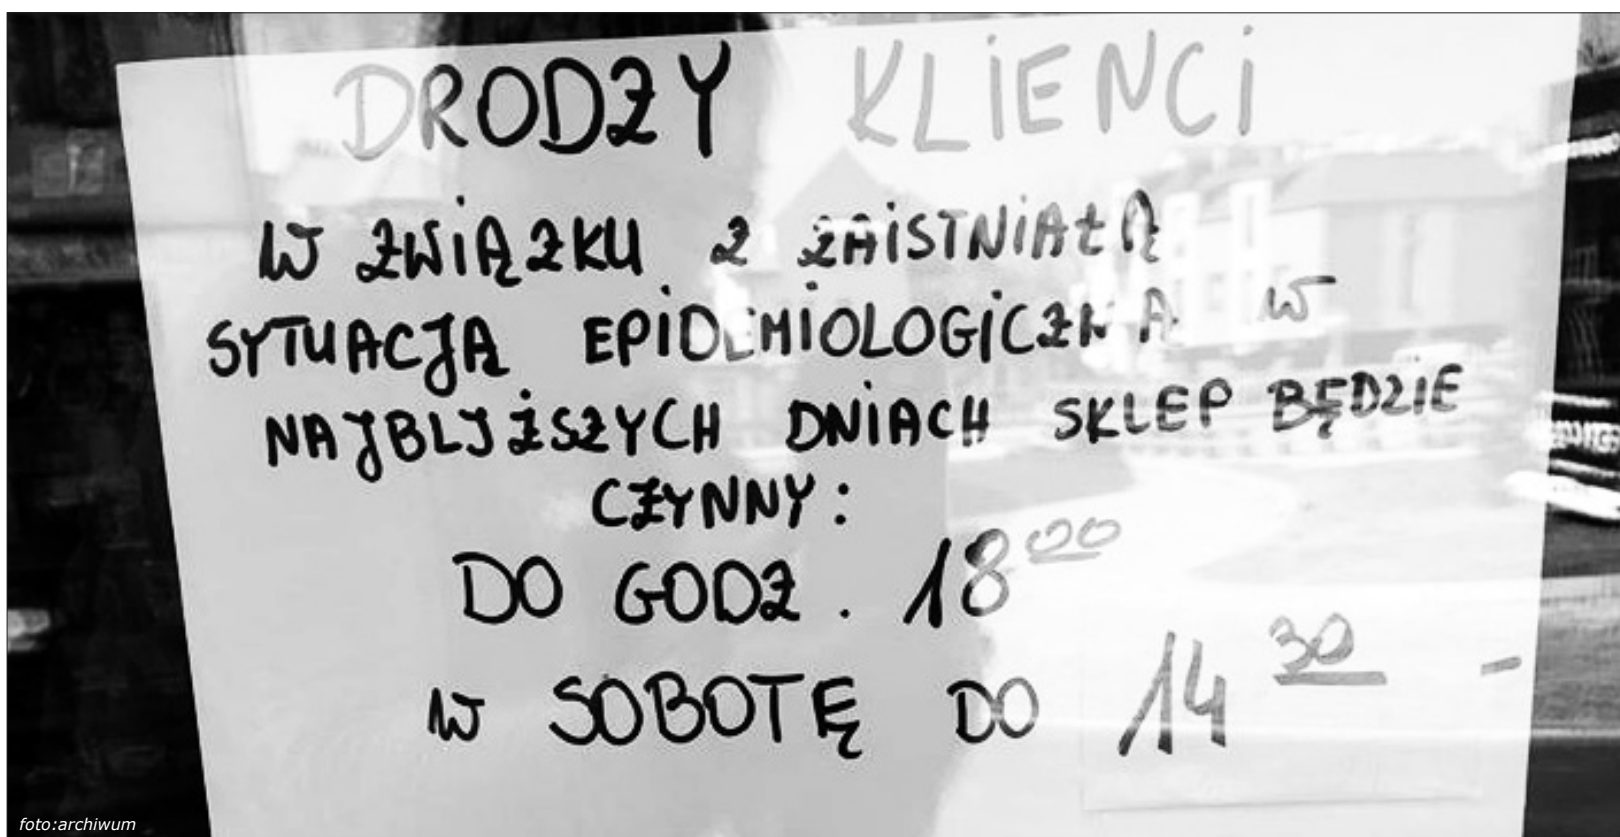 DRODZY KLIENCI
W ZWIĄZKU Z ZAISTNIAŁĄ
SYTUACJĄ EPIDEMIOLOGICZNĄ W
NAJBLIŻSZYCH DNIACH SKLEP BĘDZIE
CZYNNY:
DO GODZ. 18 00
W SOBOTĘ DO 14 30 -
foto:archiwum